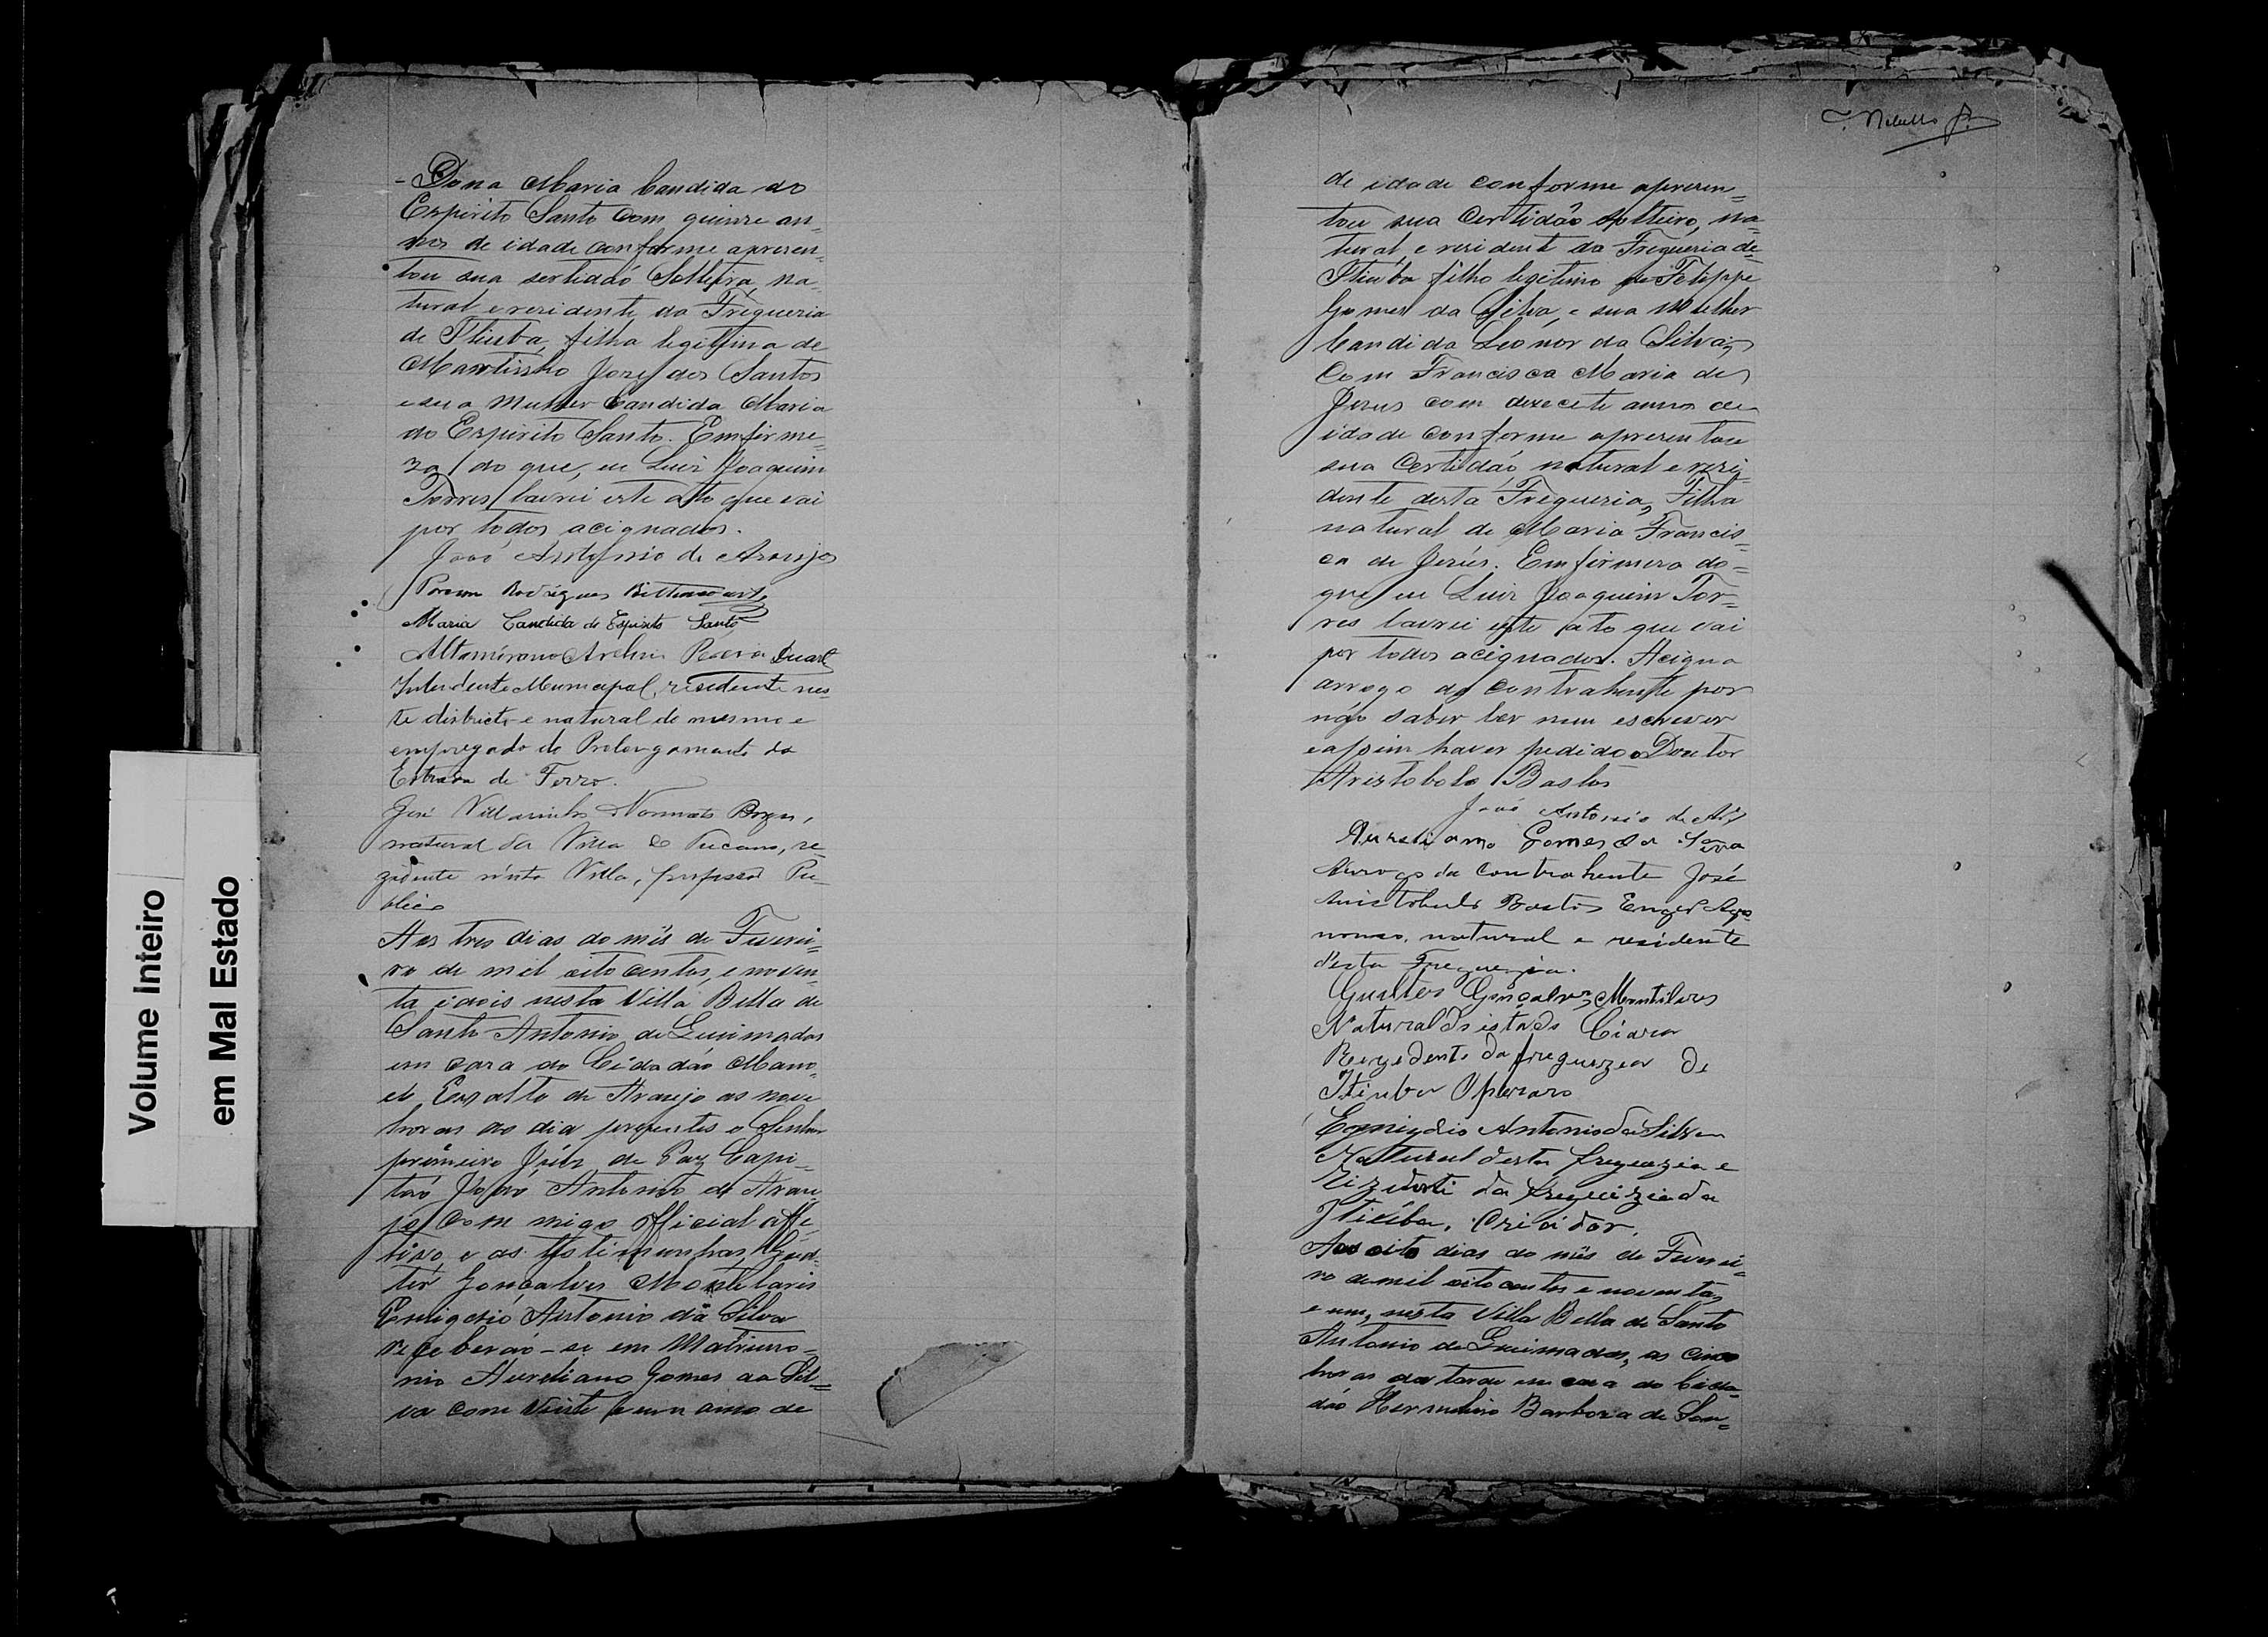 Volume Inteiro
em Mal Estado
- Dona Maria Candida do
Espirito Santo com quinze an-
nos de idade conforme apresen-
tou sua sertidaó Solteira, na-
tural e residente da Freguezia
de Itiuba, filha legitima de
Martinho José dos Santos
e sua Mulher Candida Maria
do Espirito Santo. Em firme-
za do que, eu Luiz Joaquim
Torres lavrei este ato que vai
por todos acignados.
Joaó Antonio de Araujo
Rodrigues Bittencourt
Maria Candida do Espirito Santo
Altamirano Pereira Duarte
Intendente Municipal, residente nes-
te districto e natural do mesmo e
empregado do Prolongamento da
Estrada de Ferro.
José Borges,
natural da Villa do Tucano, re-
zidente n'esta Villa, professor Pu-
blico
Aos tres dias do mês de Feverei-
ro de mil oito centos, e noven-
ta e dois nesta Villa Bella de
Santo Antonio de Queimadas
em caza do Cidadão Mano-
el de Araujo as nove
horas do dia prezentes o Senhor
primeiro Juiz de Paz Capi-
taó Joaó Antonio de Arau-
jo com migo official effe-
tivo, e as testimunhas, Gual-
ter Gonçalves Montelaris
Emigdio Antonio da Silva
receberaó-se em Matrimo-
nio Aureliano Gomes da Sil-
va com Vinte e um anno de
de idade conforme apresen-
tou sua Certidão Solteiro, na-
tural, e residente da Freguezia de
Itiuba filho legitimo de Felippe
Gomes da Silva, e sua Mulher
Candida Leonor da Silva,
Com Francisca Maria de
Jesus com dezecete annos de
idade conforme apresentou
sua Certidaó natural e resi-
dente desta Freguezia, Filha
natural de Maria Francis-
ca de Jesús. Em firmeza do-
que eu Luiz Joaquim Tor-
res lavrei este ato que vai
por todos acignados. Acigna
arrogo da contrahente por
não saber ler nem escrever
e assim haver pedido o Doutor
Aristobolo Bastos
Joaó Antonio de
Aureliano Gomes da
Arrogo da Contrahente José
Aristobulo Bastos Engro Agro
nomo, natural e residente
d'esta Freguezia.
Gualter Gonçalves Montilares
Natural do istado Ciara
Rezedente da freguezia de
Itiuba Operaro
Egmigdio Antonio da Silva
Natural desta freguezia e
rezidente da freguizia da
Itiúba. Criador.
Aos oito dias do mês de Feverei-
ro de mil oito centos e noventa,
e um, nesta Villa Bella de Santo
Antonio de Queimadas, as cinco
horas da tarde em caza do Cida-
dão Hermelino Barboza de Sou-